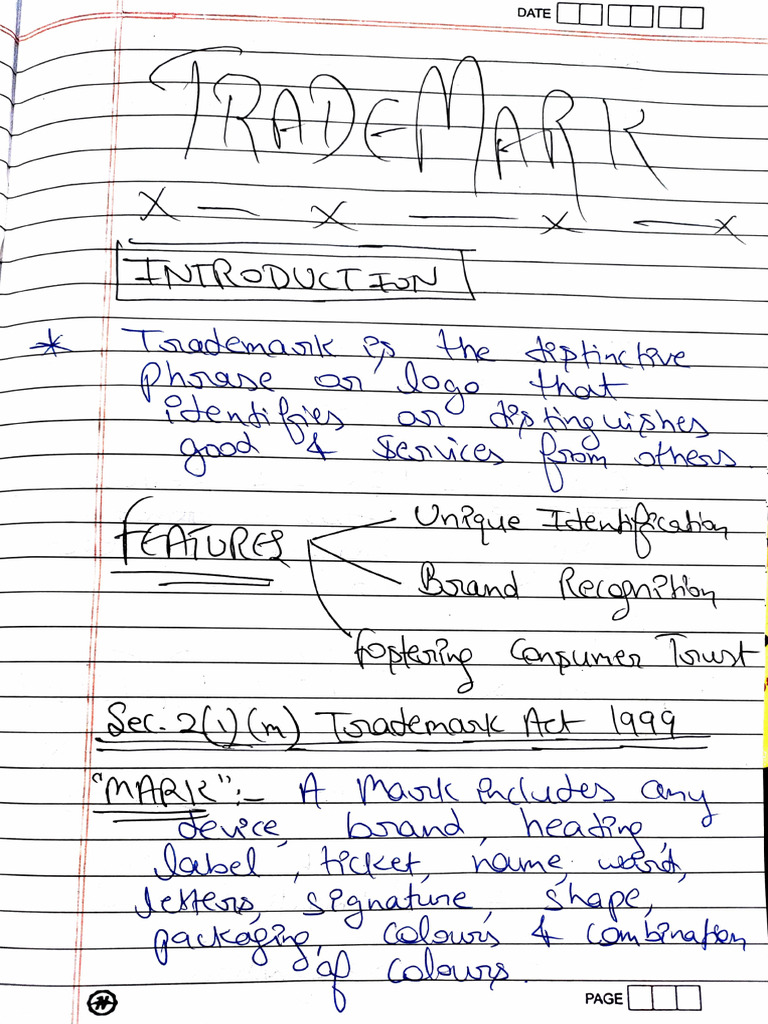 DATE
TRADEMARK
x — x — x — x
INTRODUCTION
* Trademark is the distinctive
phrase or logo that
identifies or distinguishes
good & services from others
FEATURES
Unique Identification
Brand Recognition
Fostering Consumer Trust
Sec. 2(1)(m) Trademark Act 1999
"MARK":- A Mark includes any
device, brand, heading,
label, ticket, name, word,
letters, signature, shape,
packaging, colours & combination
of colours.
PAGE